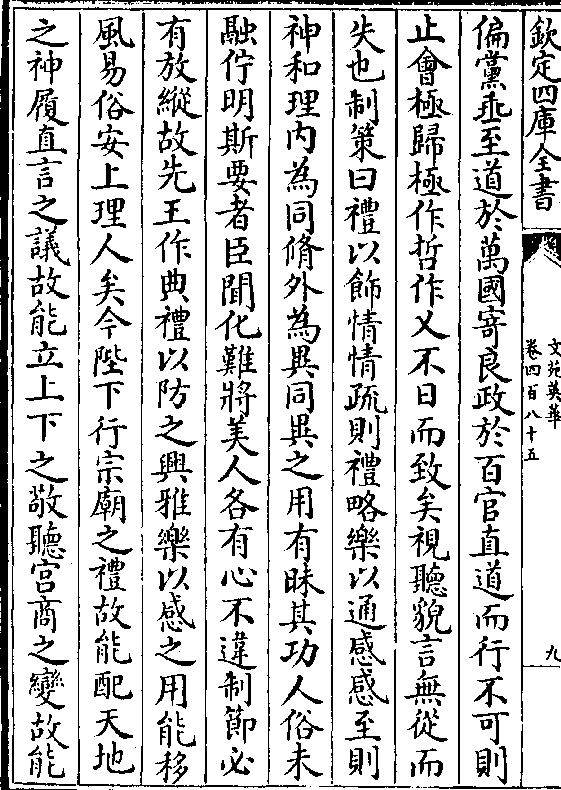 欽定四庫全書
文苑英華
卷四百八十五
九
偏黨乖至道於萬國寄良政於百官直道而行不可則
止會極歸極作哲作乂不日而致矣視聽貌言無從而
失也制策曰禮以飾情情疏則禮略樂以通感感至則
神和理内為同脩外為異同異之用有昧其功人俗未
融佇明斯要者臣聞化難將美人各有心不違制節必
有放縱故先王作典禮以防之興雅樂以感之用能移
風易俗安上理人矣今陛下行宗廟之禮故能配天地
之神履直言之議故能立上下之敬聽宫商之變故能